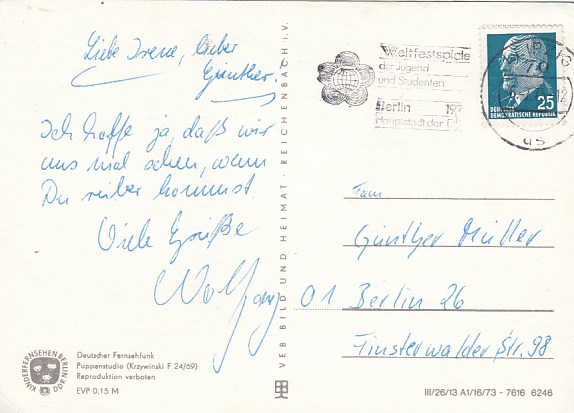 Liebe Irene, lieber
Günther.
Ich hoffe ja, daß wir
uns mal sehen, wenn
Du rüber kommst.
Viele Grüße
Wolfgang
KINDERFERNSEHEN BERLIN DDR
Deutscher Fernsehfunk
Puppenstudio (Krzywinski F 24/69)
Reproduktion verboten
EVP 0,15 M
VEB BILD UND HEIMAT · REICHENBACH i. V.
Weltfestspiele
der Jugend
und Studenten
Berlin 197
Hauptstadt der D
25
DEUTSCHE
DEMOKRATISCHE REPUBLIK
70
Fam
Günther Müller
01 Berlin 26
Finsterwalder Str. 98
III/26/13 A1/16/73 - 7616 6246